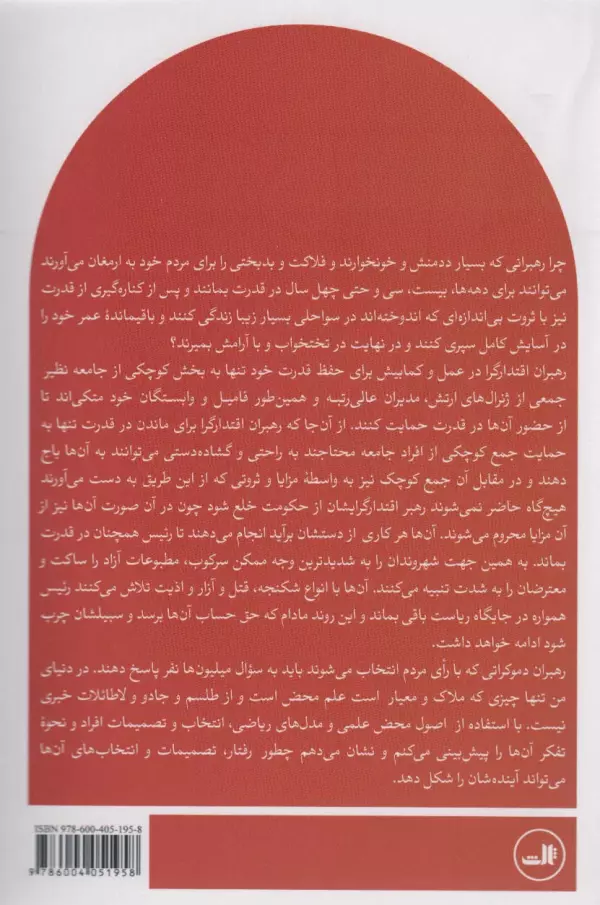 چرا رهبرانی که بسیار ددمنش و خونخوارند و فلاکت و بدبختی را برای مردم خود به ارمغان می‌آورند
می‌توانند برای دهه‌ها، بیست، سی و حتی چهل سال در قدرت بمانند و پس از کناره‌گیری از قدرت
نیز با ثروت بی‌اندازه‌ای که اندوخته‌اند در سواحلی بسیار زیبا زندگی کنند و باقیماندهٔ عمر خود را
در آسایش کامل سپری کنند و در نهایت در تختخواب و با آرامش بمیرند؟
رهبران اقتدارگرا در عمل و کمابیش برای حفظ قدرت خود تنها به بخش کوچکی از جامعه نظیر
جمعی از ژنرال‌های ارتش، مدیران عالی‌رتبه و همین‌طور فامیل و وابستگان خود متکی‌اند تا
از حضور آن‌ها در قدرت حمایت کنند. از آن‌جا که رهبران اقتدارگرا برای ماندن در قدرت تنها به
حمایت جمع کوچکی از افراد جامعه محتاجند به راحتی و گشاده‌دستی می‌توانند به آن‌ها باج
دهند و در مقابل آن جمع کوچک نیز به واسطهٔ مزایا و ثروتی که از این طریق به دست می‌آورند
هیچ‌گاه حاضر نمی‌شوند رهبر اقتدارگرایشان از حکومت خلع شود چون در آن صورت آن‌ها نیز از
آن مزایا محروم می‌شوند. آن‌ها هر کاری از دستشان برآید انجام می‌دهند تا رئیس همچنان در قدرت
بماند. به همین جهت شهروندان را به شدیدترین وجه ممکن سرکوب، مطبوعات آزاد را ساکت و
معترضان را به شدت تنبیه می‌کنند. آن‌ها با انواع شکنجه، قتل و آزار و اذیت تلاش می‌کنند رئیس
همواره در جایگاه ریاست باقی بماند و این روند مادام که حق حساب آن‌ها برسد و سبیلشان چرب
شود ادامه خواهد داشت.
رهبران دموکراتی که با رأی مردم انتخاب می‌شوند باید به سؤال میلیون‌ها نفر پاسخ دهند. در دنیای
من تنها چیزی که ملاک و معیار است علم محض است و از طلسم و جادو و لاطائلات خبری
نیست. با استفاده از اصول محض علمی و مدل‌های ریاضی، انتخاب و تصمیمات افراد و نحوهٔ
تفکر آن‌ها را پیش‌بینی می‌کنم و نشان می‌دهم چطور رفتار، تصمیمات و انتخاب‌های آن‌ها
می‌تواند آینده‌شان را شکل دهد.
ISBN 978-600-405-195-8
9 786004 051958
ثالث